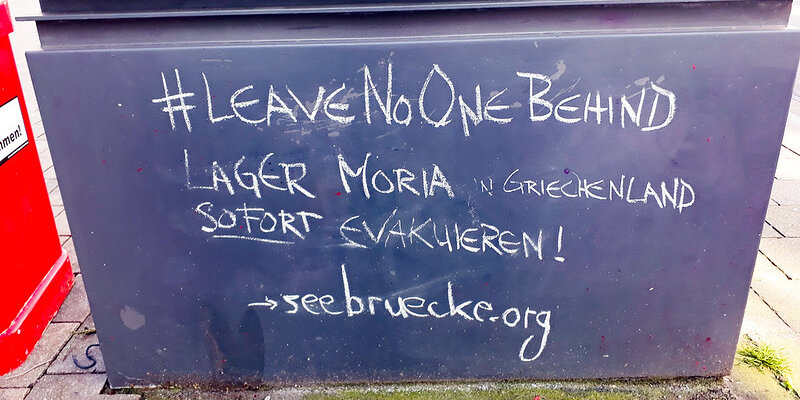 #LEAVENOONEBEHIND
LAGER MORIA IN GRIECHENLAND
SOFORT EVAKUIEREN!
→seebruecke.org
mmen!